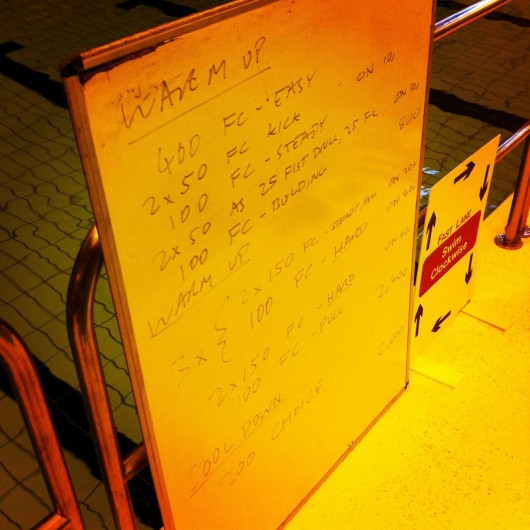 WARM UP
400 FC - EASY
2 x 50 FC KICK - ON 10
100 FC - STEADY
2 x 50 AS 25 FIST DRILL, 25 FC ON 10
100 FC - BUILDING 800
WARM UP
3 x { 2 x 150 FC - STEADY, PULL
100 FC - HARD
2 x 150 FC - HARD
100 FC - PULL 2,400
COOL DOWN
200 CHOICE 2,600
FAST LANE
Swim
Clockwise